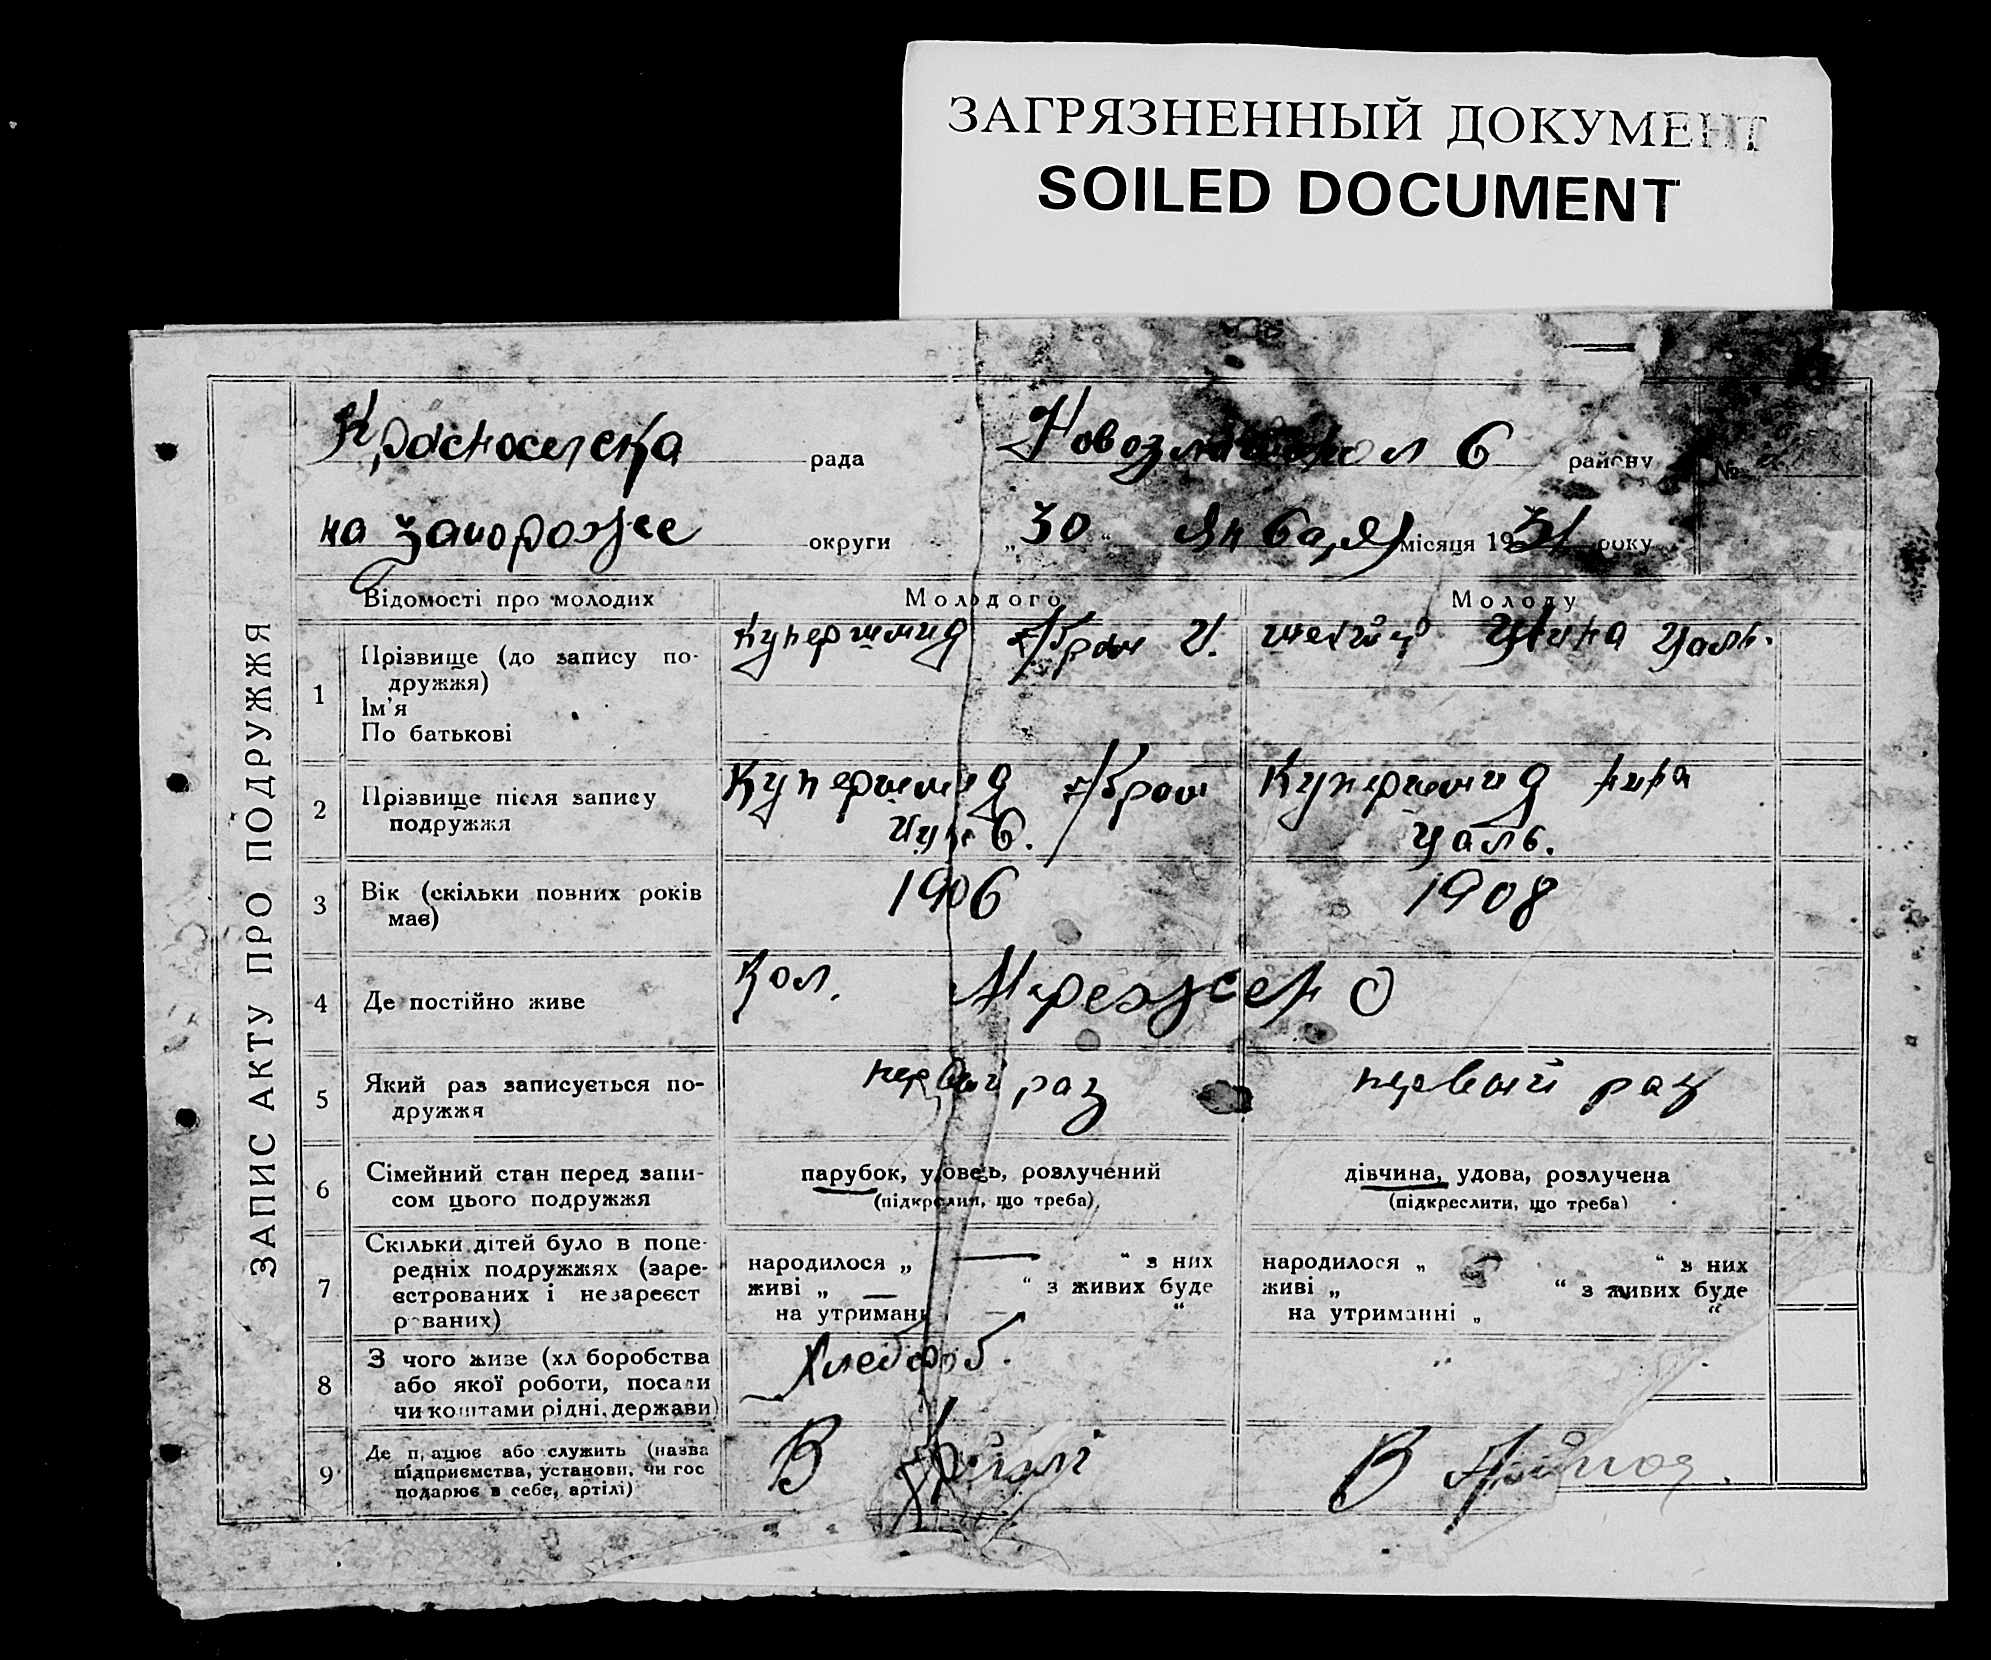 ЗАГРЯЗНЕННЫЙ ДОКУМЕНТ
SOILED DOCUMENT
ЗАПИС АКТУ ПРО ПОДРУЖЖЯ
Красноселска рада район у №
на Запорожже округи „30“ Января місяця 1931 року
Відомості про молодих Молодого Молоду
1 Прізвище (до запису по-
дружжя)
Ім'я
По батькові
Купершмид Абрам И.
Цаль.
2 Прізвище після запису
подружжя
Купершмид Абрам
Купершмид
Цаль.
3 Вік (скільки повних років
має)
1906 1908
4 Де постійно живе
Кол. Мережено
5 Який раз записується по-
дружжя
первый раз первый раз
6 Сімейний стан перед запи-
сом цього подружжя
парубок, удовець, розлучений
(підкреслити, що треба)
дівчина, удова, розлучена
(підкреслити, що треба)
7 Скільки дітей було в попе-
редніх подружжях (заре-
єстрованих і незареєст
рованих)
народилося „ — “ з них
живі „ — “ з живих буде
на утриманні — “
народилося „ “ з них
живі „ “ з живих буде
на утриманні „ “
8 З чого живе (хліборобства
або якої роботи, посади
чи коштами рідні, держави)
Хлебороб. „
9 Де працює або служить (назва
підприємства, установи, чи гос
подарює в себе, артілі)
В В